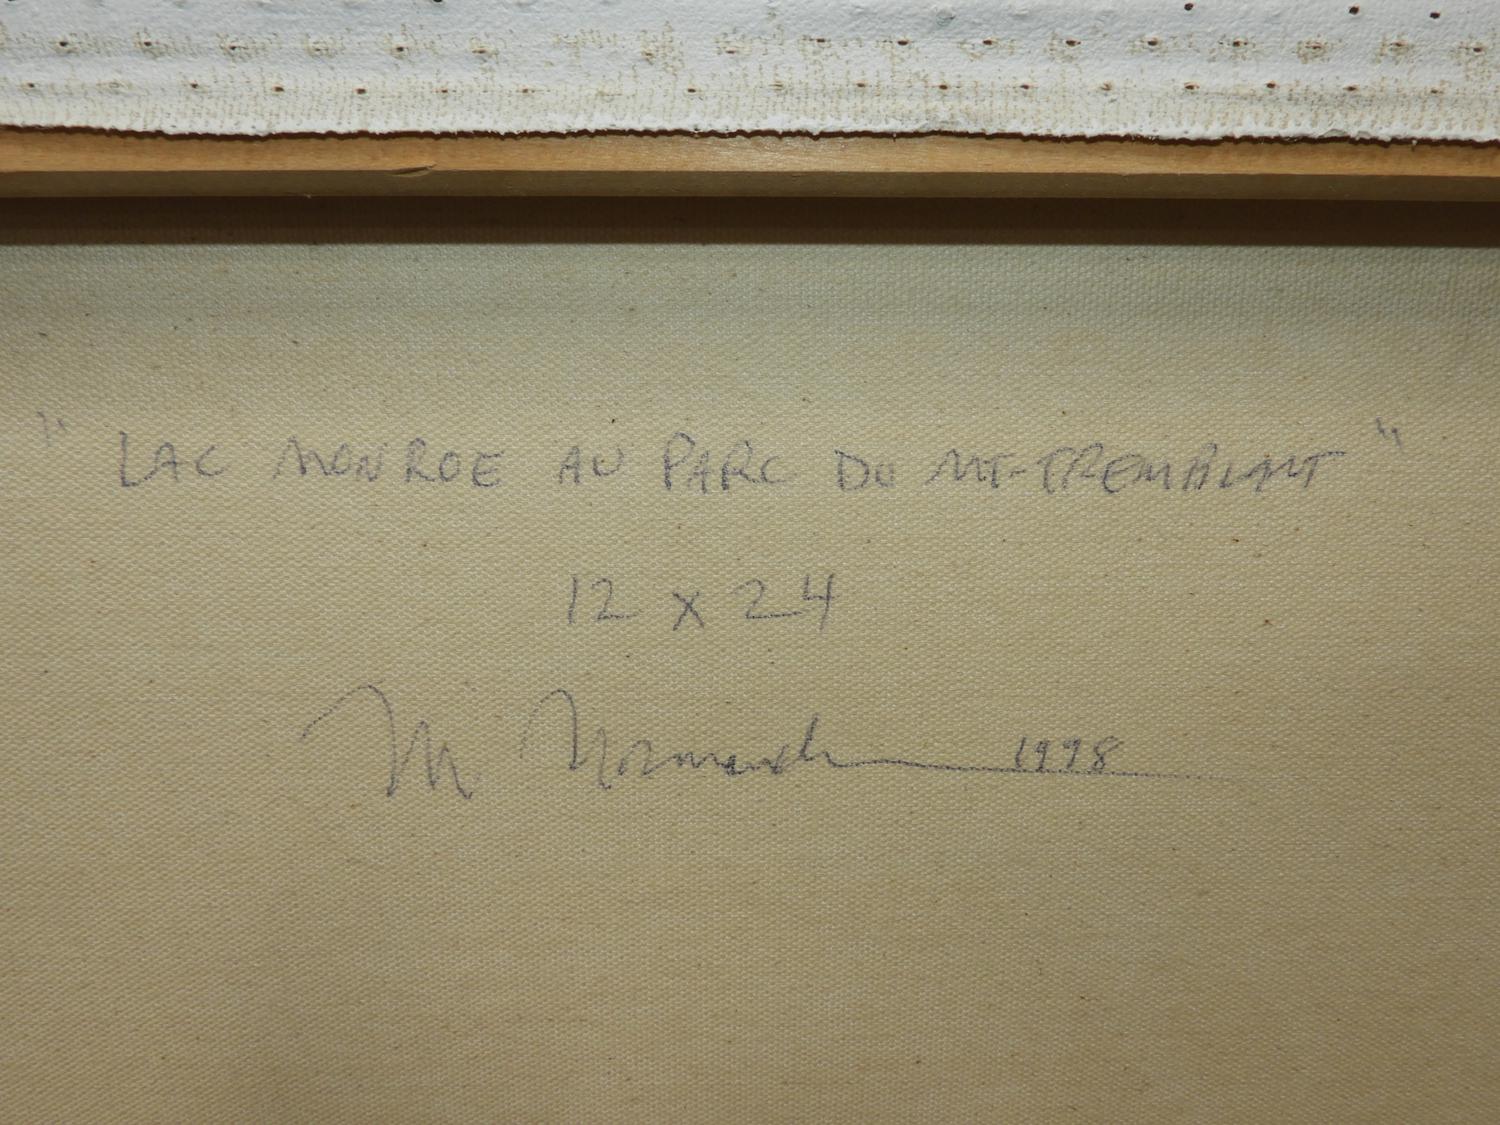 "LAC MONROE AU PARC DU MT-TREMBLANT"
12 x 24
M. Normand 1998